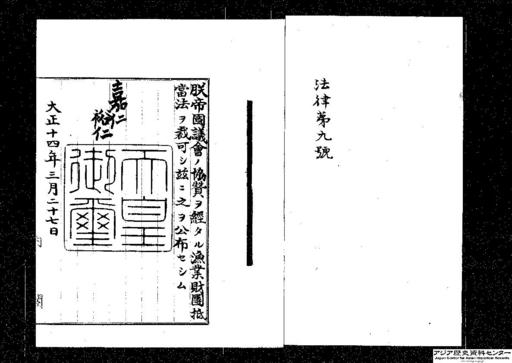 法律第九號
朕帝國議會ノ協賛ヲ經タル漁業財團抵
當法ヲ裁可シ玆ニ之ヲ公布セシム
嘉仁
裕仁
天皇
御璽
大正十四年三月二十七日
内閣
アジア歴史資料センター
Japan Center for Asian Historical Records